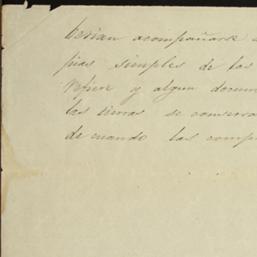 berian acompañarse
pias simples de los
refiere y algun docum
las tierras se conserva
de mando las comp